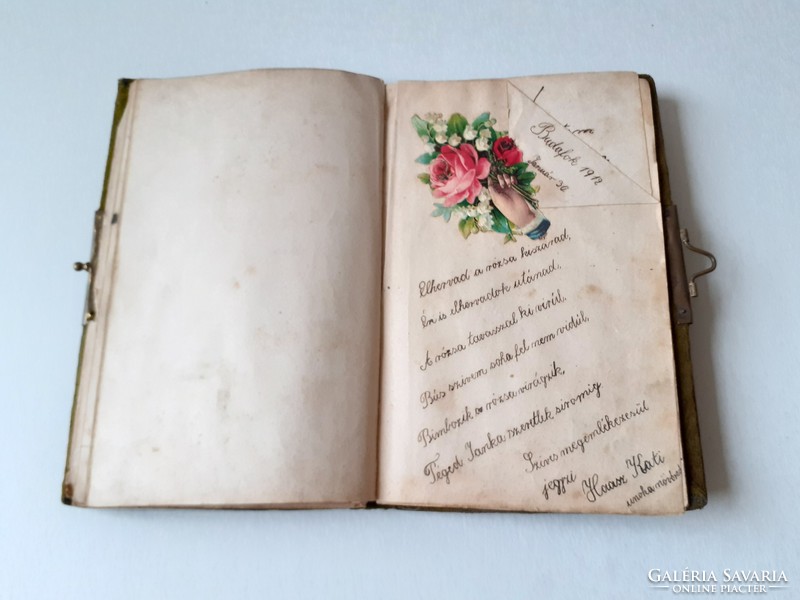 Budafok 1912
Január 26
Elhervad a rózsa kiszárad,
Én is elhervadok utánad,
A rózsa tavasszal ki virúl,
Bús szivem soha fel nem vidúl,
Bimbozik a rózsa virágzik,
Téged Janka szeretlek siromig
Szives megemlékezesül
jegyzi Haasz Kati
unoka nővéred
GALÉRIA SAVARIA
ONLINE PIACTÉR